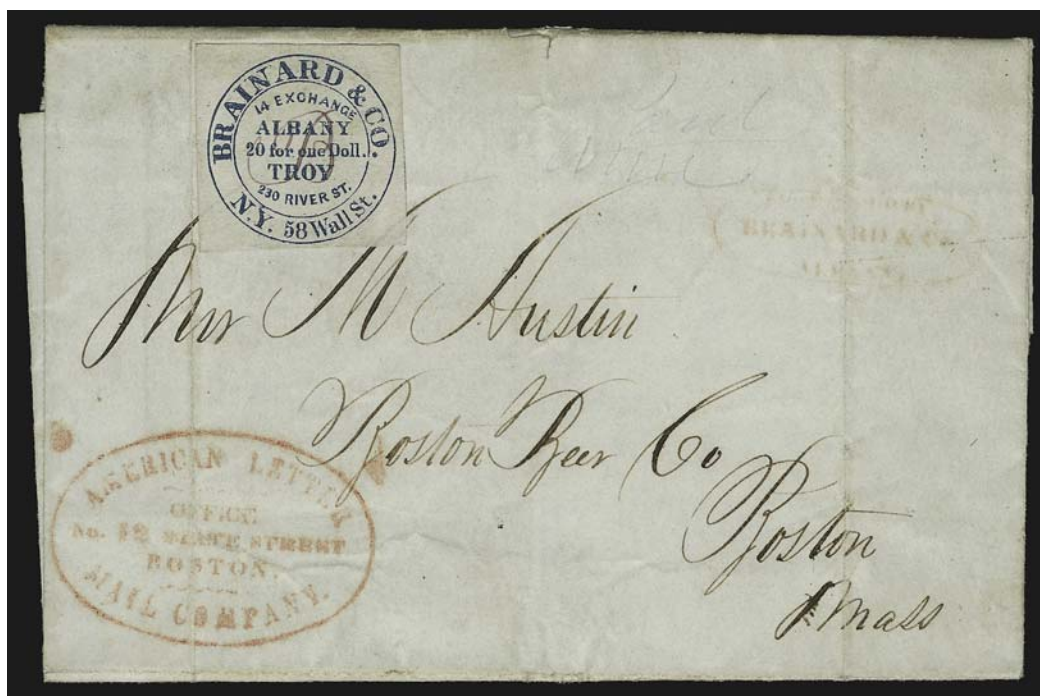 BRAINARD & CO.
14 EXCHANGE
ALBANY
20 for one Doll.
TROY
230 RIVER ST.
N.Y. 58 Wall St.
B
BRAINARD & Co
ALBANY
Mr M Austin
Boston Beer Co
Boston
Mass
AMERICAN LETTER
OFFICE
No. 12 STATE STREET
BOSTON.
MAIL COMPANY.